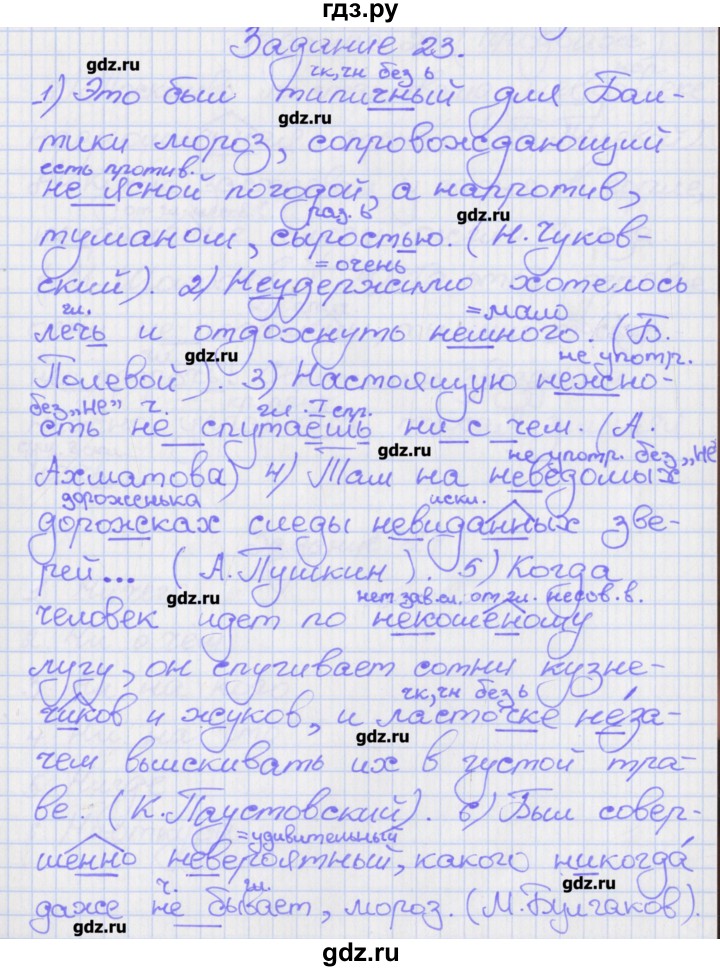 гдз.ру
Задание 23.
gdz.ru
чк, чн без ь
1) Это был типичный для Бал-
gdz.ru
тики мороз, сопровождающий
есть против.
не ясной погодой, а напротив,
раз. ь
gdz.ru
туманом, сыростью. (Н. Чуков-
=очень
ский). 2) Неудержимо хотелось
гл.
=мало
лечь и отдохнуть немного. (Б.
gdz.ru
не употр.
Полевой). 3) Настоящую нежно-
без „не" ч. гл. I спр.
сть не спутаешь ни с чем. (А.
gdz.ru
не употр. без „не
Ахматова) 4) Там на неведомых
дороженька
искл.
дорожках следы невиданных зве-
рей... (А. Пушкин). 5) Когда
gdz.ru
нет зав. сл. от гл. несов. в.
человек идет по некошеному
лугу, он спугивает сотни кузне-
чк, чн без ь
чиков и жуков, и ласточке не́за-
gdz.ru
чем выискивать их в густой тра-
ве. (К. Паустовский). 6) Был совер-
=удивительный
шенно невероятный, какого никогда́
ч. гл.
gdz.ru
даже не бывает, мороз. (М. Булгаков).
gdz.ru
gdz.ru